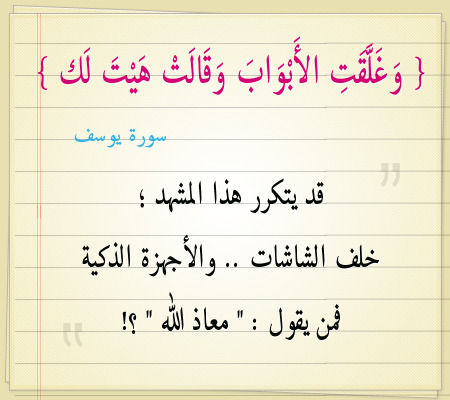 { وَغَلَّقَتِ الأَبْوَابَ وَقَالَتْ هَيْتَ لَك }
سورة يوسف
قد يتكرر هذا المشهد ؛
خلف الشاشات .. والأجهزة الذكية
فمن يقول : " معاذ الله " ؟!